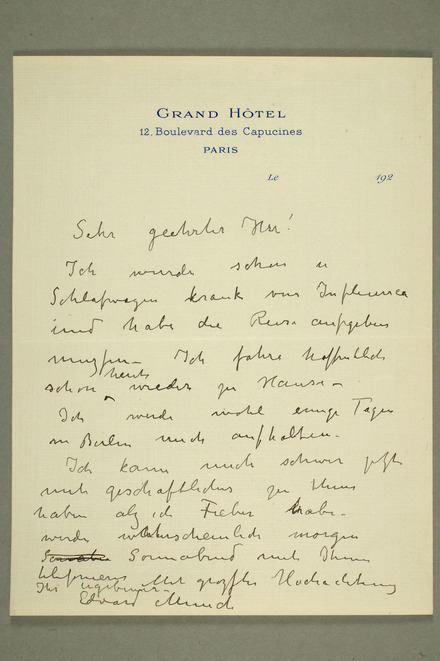 GRAND HÔTEL
12, Boulevard des Capucines
PARIS
Le 192
Sehr geehrter Herr!
Ich wurde schon u
Schlafwagen krank von Influenca
und habe die Reise aufgeben
muszen – Ich fahre hoffentlich
heute
schon wieder zu Hause –
Ich werde wohl einige Tagen
in Berlin mich aufhalten –
Ich kann mich schwer jetzt
mit geschaftliches zu thuns
haben als ich Fieber habe –
werde wahrscheinlich morgen
Sonnabend mit Ihnen
Mit groszter Hochachtung
Ihr
Edvard Munch